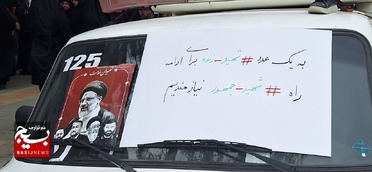 125
به یک عدد #شهید_زنده برای ادامه
راه #شهید_جمهور نیازمندیم
بسیج
BASIJNEWS